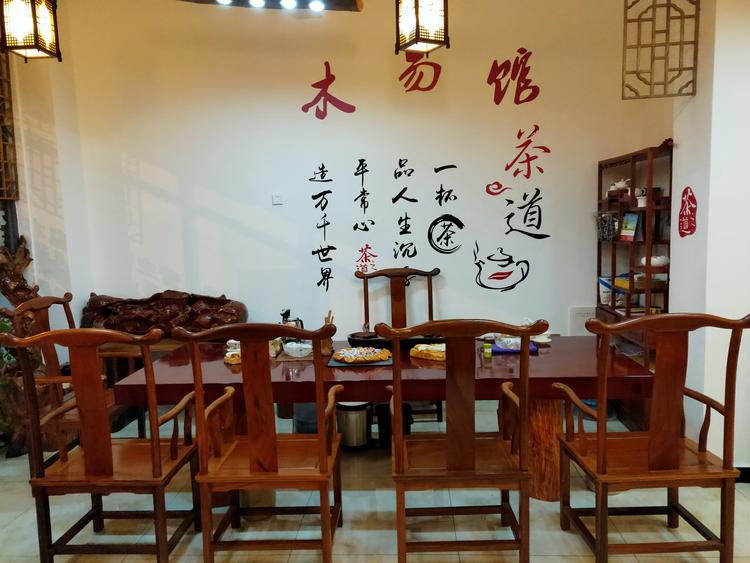 木易馆
茶道
一杯茶
品人生沉
平常心
茶道
造万千世界
茶道